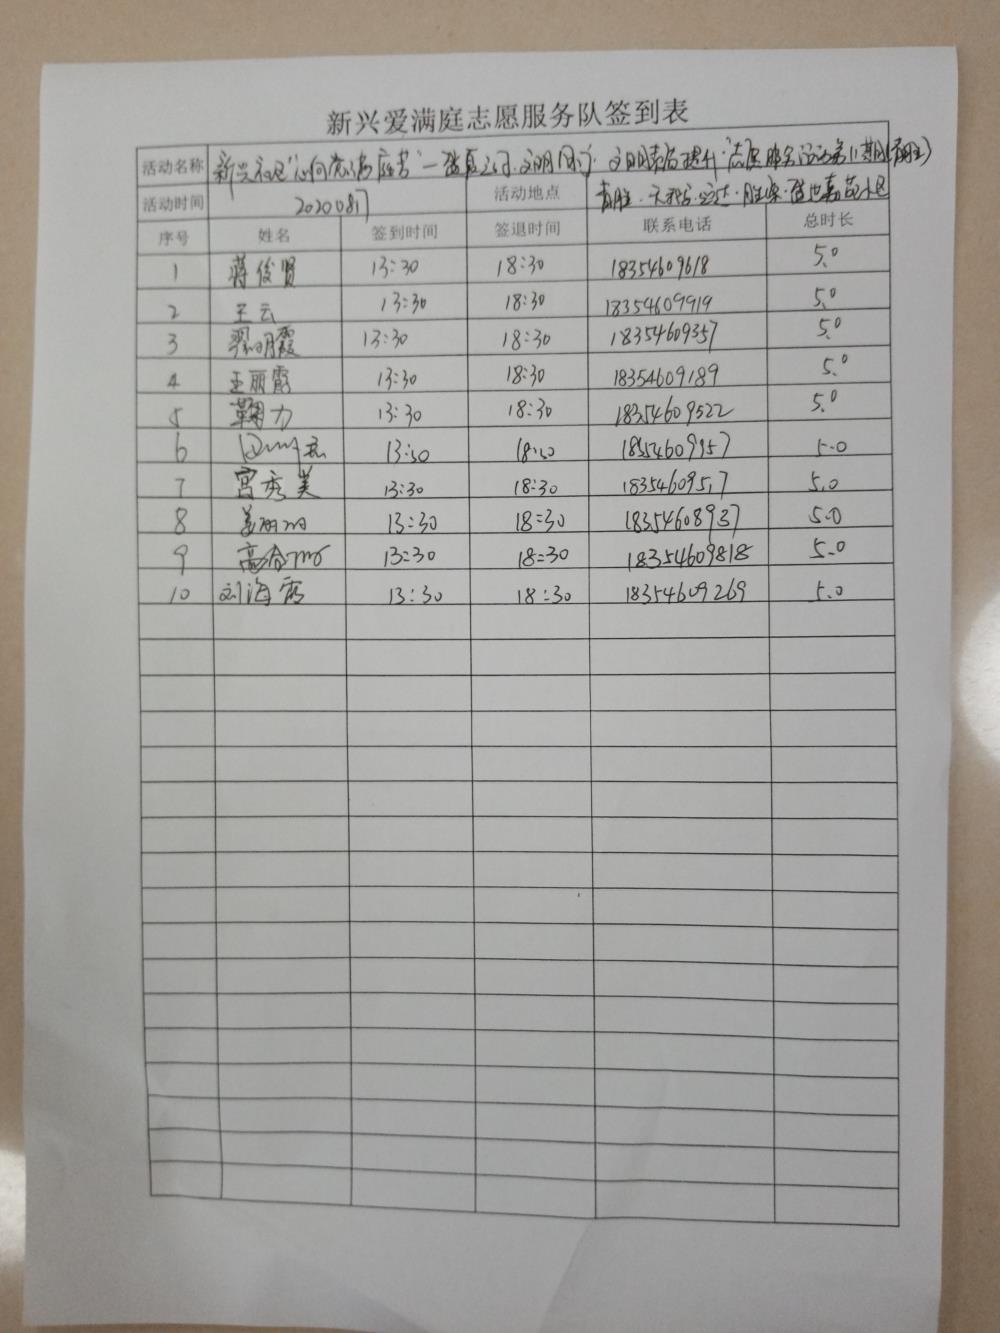 新兴爱满庭志愿服务队签到表
活动名称 新兴社区"心向党 爱满庭 书"一 盛夏 文明 文明素质提升·志愿服务活动第11期(青胜)
活动时间 20200817 活动地点 青胜·天 ·宏达·胜 ·盛世嘉苑小区
序号 姓名 签到时间 签退时间 联系电话 总时长
1 蒋俊贤 13:30 18:30 18354609618 5.0
2 王云 13:30 18:30 18354609919 5.0
3 明霞 13:30 18:30 18354609357 5.0
4 王丽霞 13:30 18:30 18354609189 5.0
5 鞠力 13:30 18:30 18354609522 5.0
6 13:30 18:30 18354609957 5.0
7 宫秀美 13:30 18:30 5.0
8 姜丽 13:30 18:30 18354608937 5.0
9 高 13:30 18:30 18354609818 5.0
10 刘海霞 13:30 18:30 18354609269 5.0